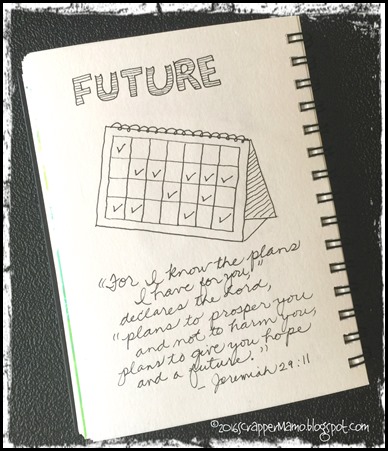 FUTURE
"For I know the plans
I have for you,"
declares the Lord,
"plans to prosper you
and not to harm you,
plans to give you hope
and a future."
- Jeremiah 29:11
©2016scrapperMamo.blogspot.com